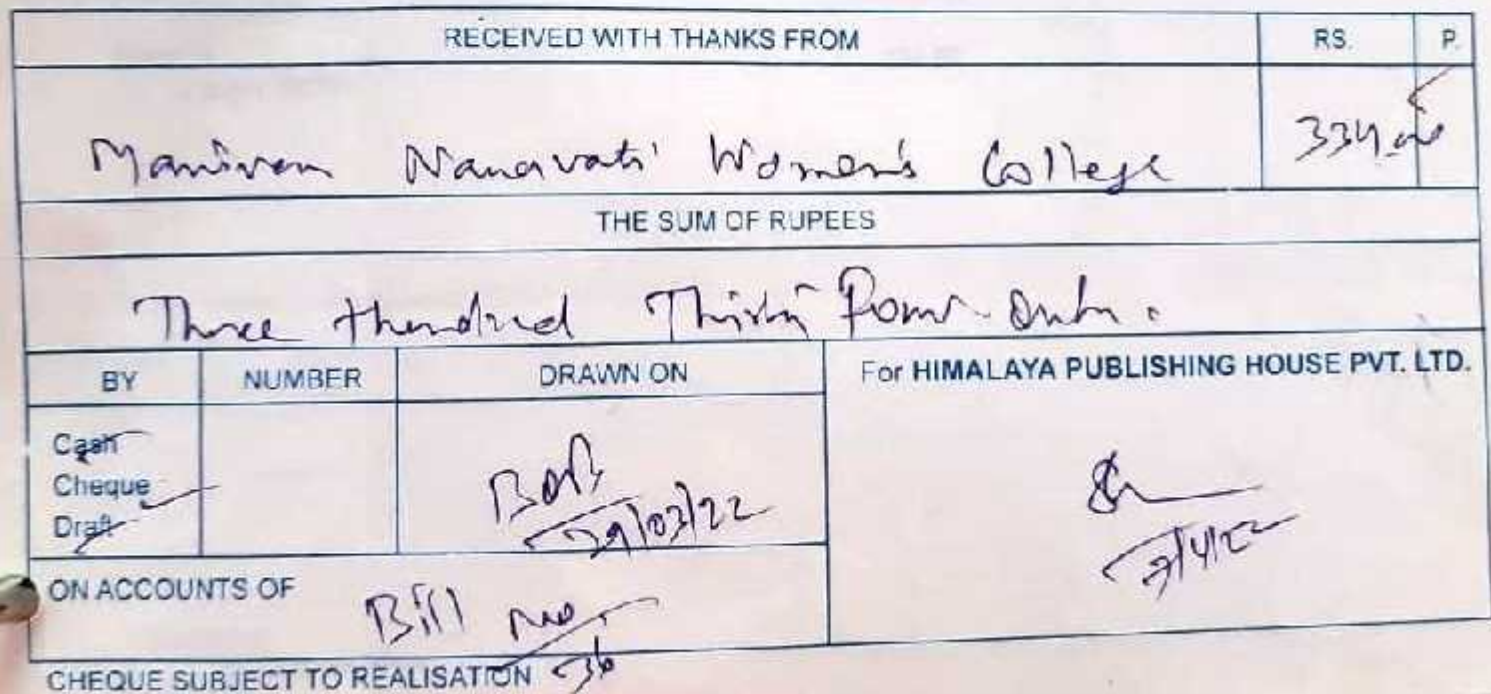 RECEIVED WITH THANKS FROM RS. P.
Maniben Nanavati Women's College 334.00
THE SUM OF RUPEES
Three Hundred Thirty Four Only.
BY NUMBER DRAWN ON For HIMALAYA PUBLISHING HOUSE PVT. LTD.
Cash
Cheque
Draft
BOB
29/03/22
7/4/22
ON ACCOUNTS OF Bill No.
36
CHEQUE SUBJECT TO REALISATION